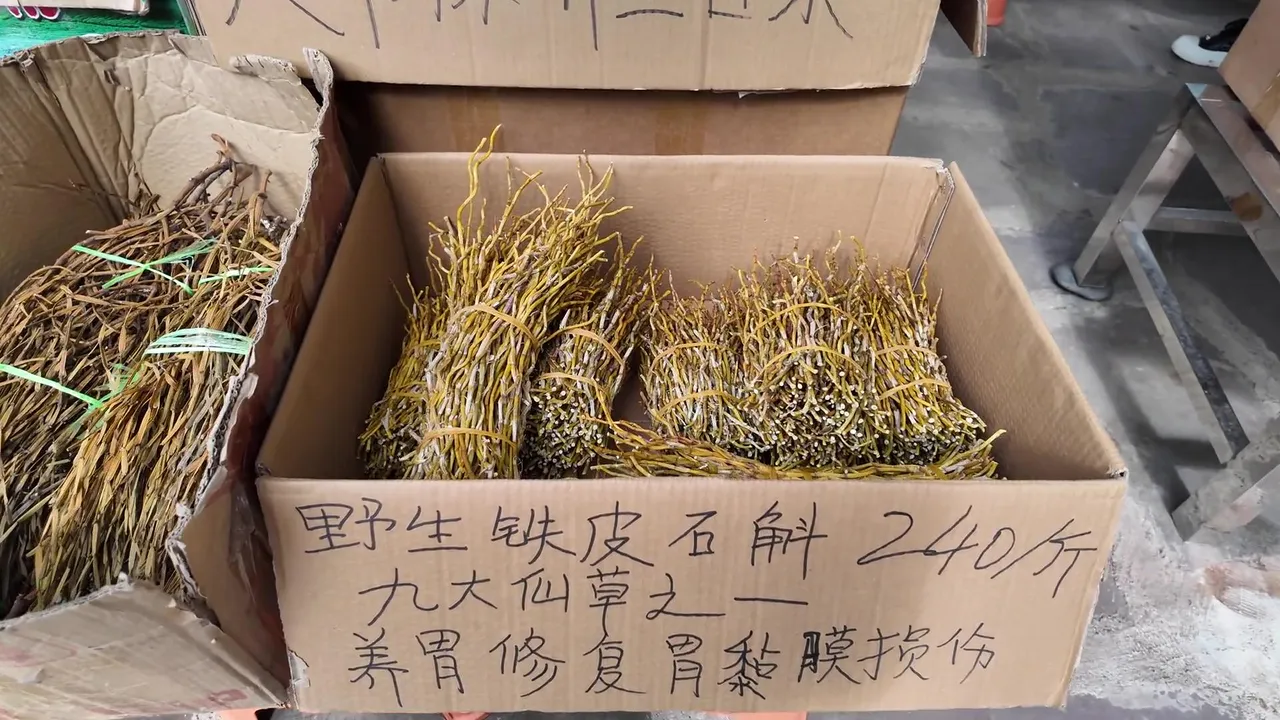 野生铁皮石斛 240/斤
九大仙草之一
养胃修复胃黏膜损份